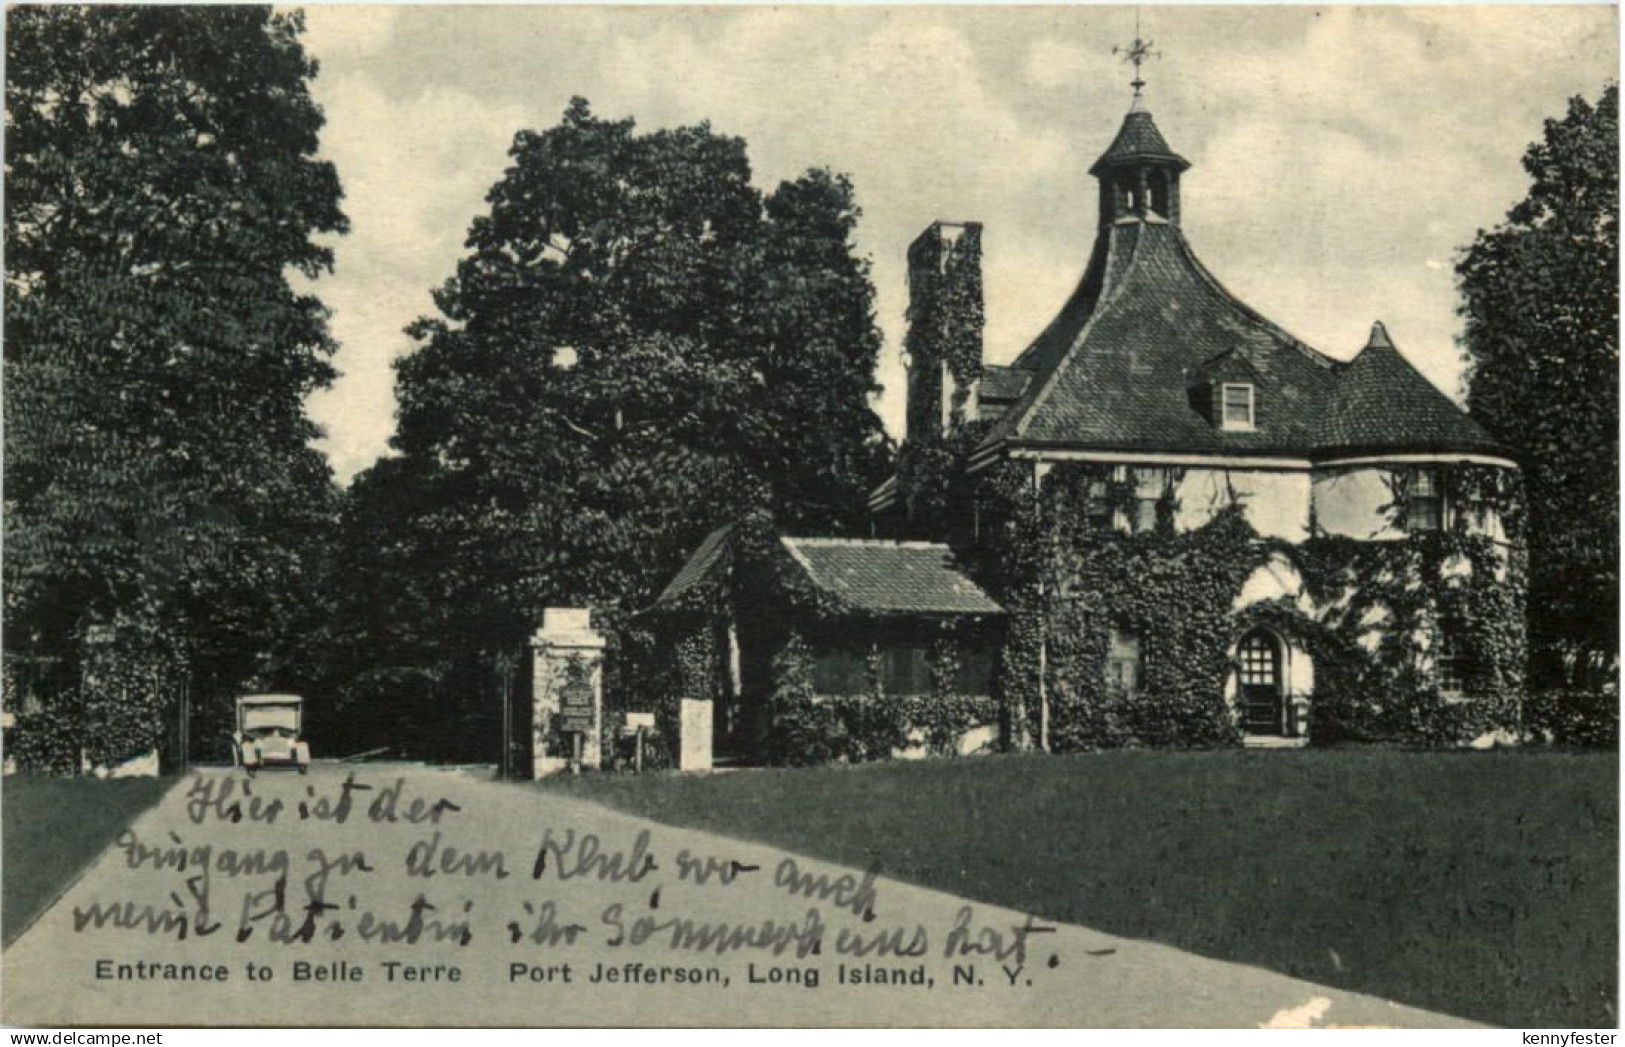 Hier ist der
Eingang zu dem Klub, wo auch
meine Patientin ihr Sommerhaus hat. –
Entrance to Belle Terre Port Jefferson, Long Island, N. Y.
www.delcampe.net
kennyfester